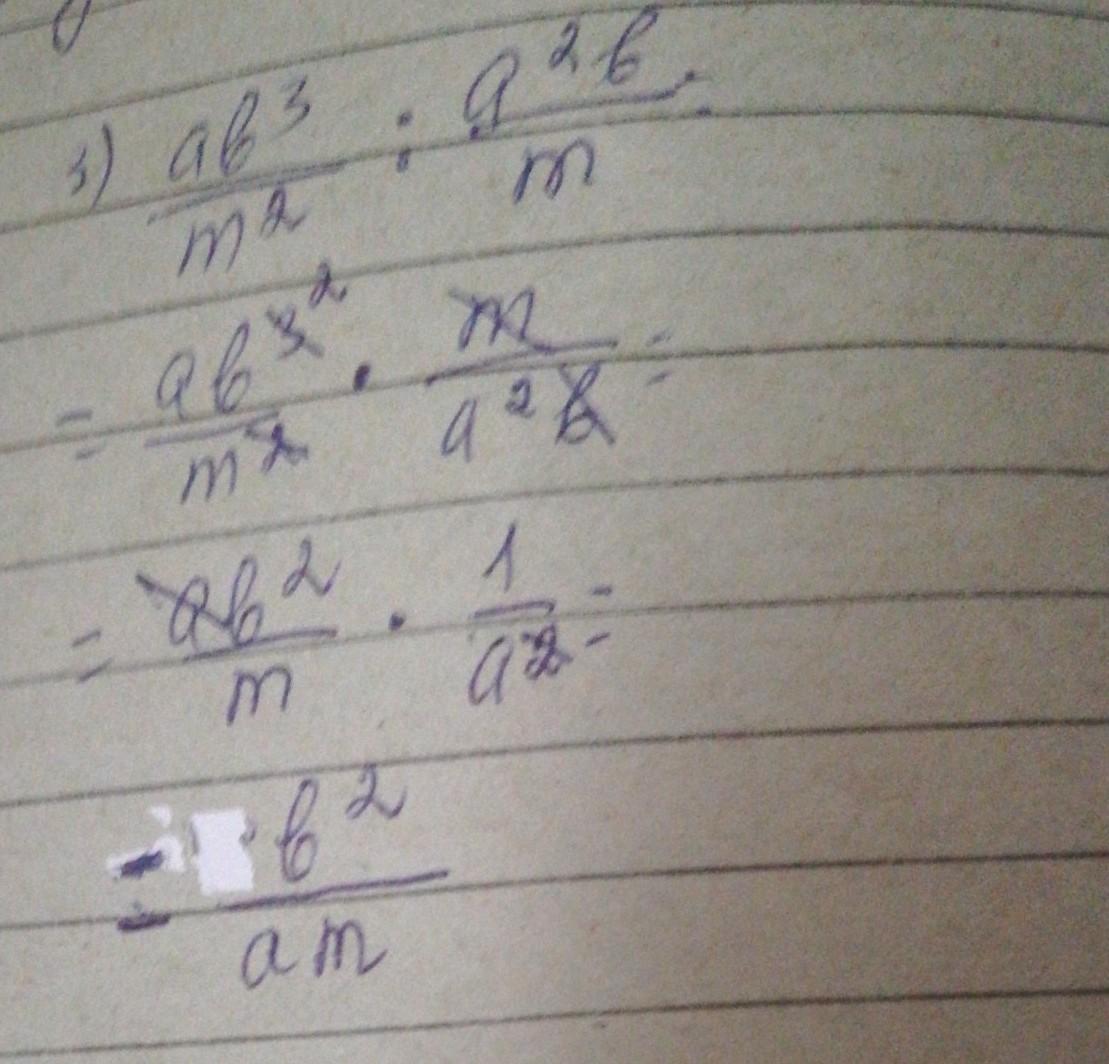 3) ab³/m² : a²b/m =
= ab³ ²/m² · m/a²b =
= ab²/m · 1/a² =
= b²/am